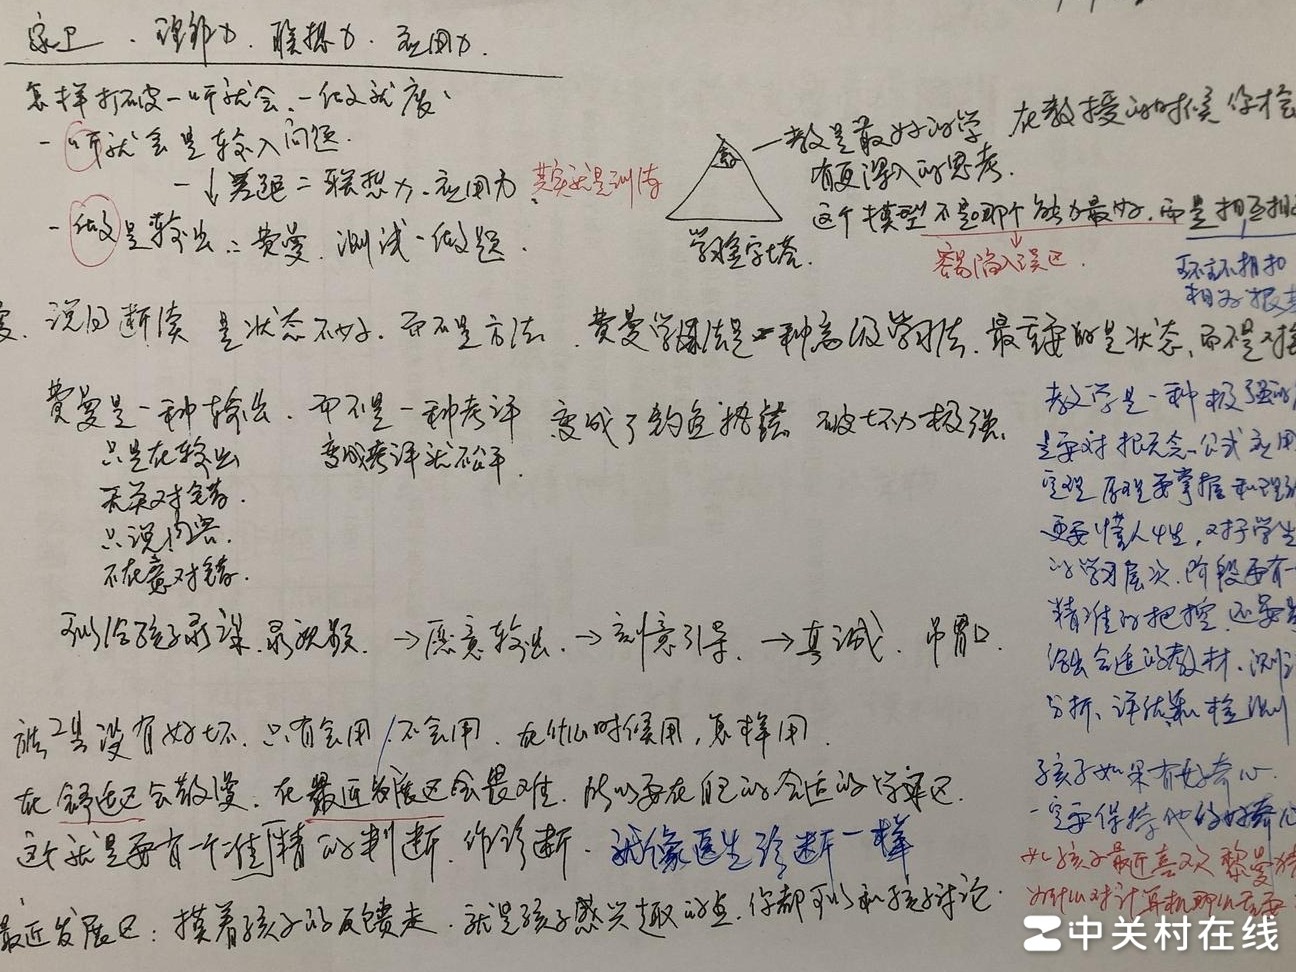 理解力、联想力、应用力。
怎样打破一听就会、一做就废
一听就会是输入问题.
一↓差距=联想力、应用力、其实就是训练
一做是输出=费曼、测试一做题.
学习金字塔.
一教是最好的学 在教授的时候你才会
有更深入的思考.
这个模型不是哪个能力最好,而是相互
容易陷入误区.
环环相扣
相为
说得断续是状态不好,而不是方法、费曼学习法是一种高级学习法,最重要的是状态,而不是对错
费曼是一种输出,而不是一种考评 变成了钓鱼挑错 破坏力极强.
只是在输出 变成考评就不公平.
无关对错.
只说内容.
不在意对错.
可以给孩子录课.录视频. →愿意输出、→刻意引导、→真诚、吊胃口.
工具没有好坏、只有会用/不会用、在什么时候用,怎样用.
在舒适区会散漫、在最近发展区会畏难、所以要在自己的合适的学习区.
这个就是要有一个准/精的判断、作诊断、就像医生诊断一样
最近发展区:摸着孩子的反馈走、就是孩子感兴趣的点、你都可以和孩子讨论.
教学是一种极强的
是要对概念、公式应用
定理原理要掌握和理解
更要懂人性,对于学生
的学习层次、阶段要有一
精准的把控,还要
给出合适的教材、测试
分析、评估和检测
孩子如果有好奇心.
一定要保持他的好奇心
孩子最近喜欢黎曼猜
为什么对计算机那么重要
中关村在线